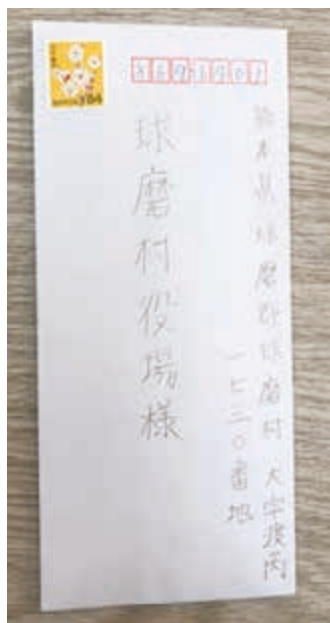 84
熊本県球磨郡球磨村大字渡丙
一七三〇番地
球磨村役場様